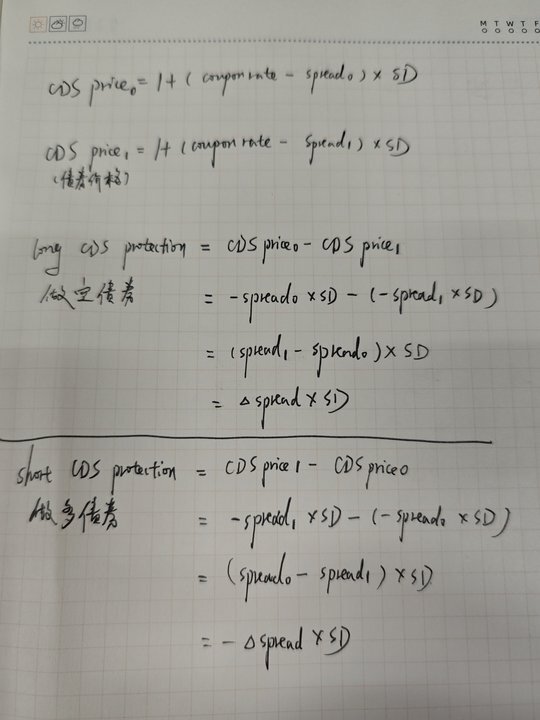 M T W T F
CDS price₀ = 1 + ( coupon rate - spread₀ ) × SD
CDS price₁ = 1 + ( coupon rate - spread₁ ) × SD
(债券价格)
long CDS protection = CDS price₀ - CDS price₁
做空债券 = - spread₀ × SD - (- spread₁ × SD )
= (spread₁ - spread₀ ) × SD
= △ spread × SD
short CDS protection = CDS price 1 - CDS price 0
做多债券 = - spread₁ × SD - (- spread₀ × SD )
= ( spread₀ - spread₁ ) × SD
= - △ spread × SD